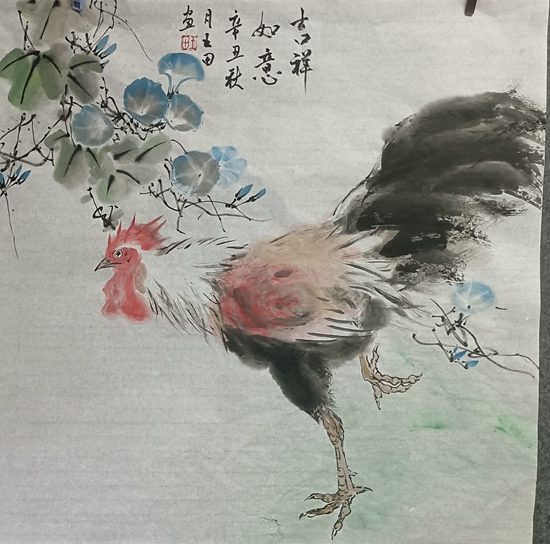 吉祥
如意
辛丑秋
月土田
画